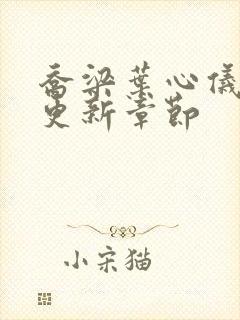 乔梁叶心仪
更新章节
小宋猫